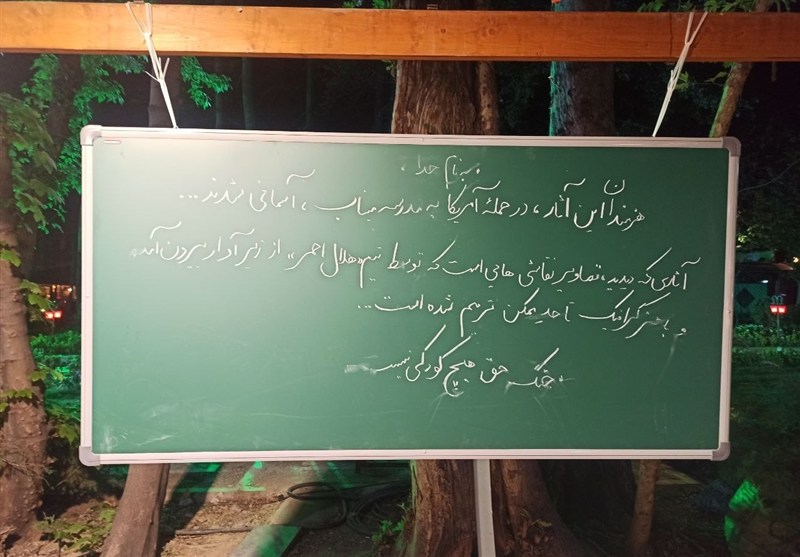 به نام خدا
هنرمندان این آثار، در حملهٔ آمریکا به مدرسه میناب، آسمانی شدند...
آثاری که دیدید، تصاویر نقاشی هایی است که توسط تیم «هلال احمر» از زیر آوار بیرون آمد
و با هنر گرافیک تا حد ممکن ترمیم شده است...
جنگ حق هیچ کودکی نیست